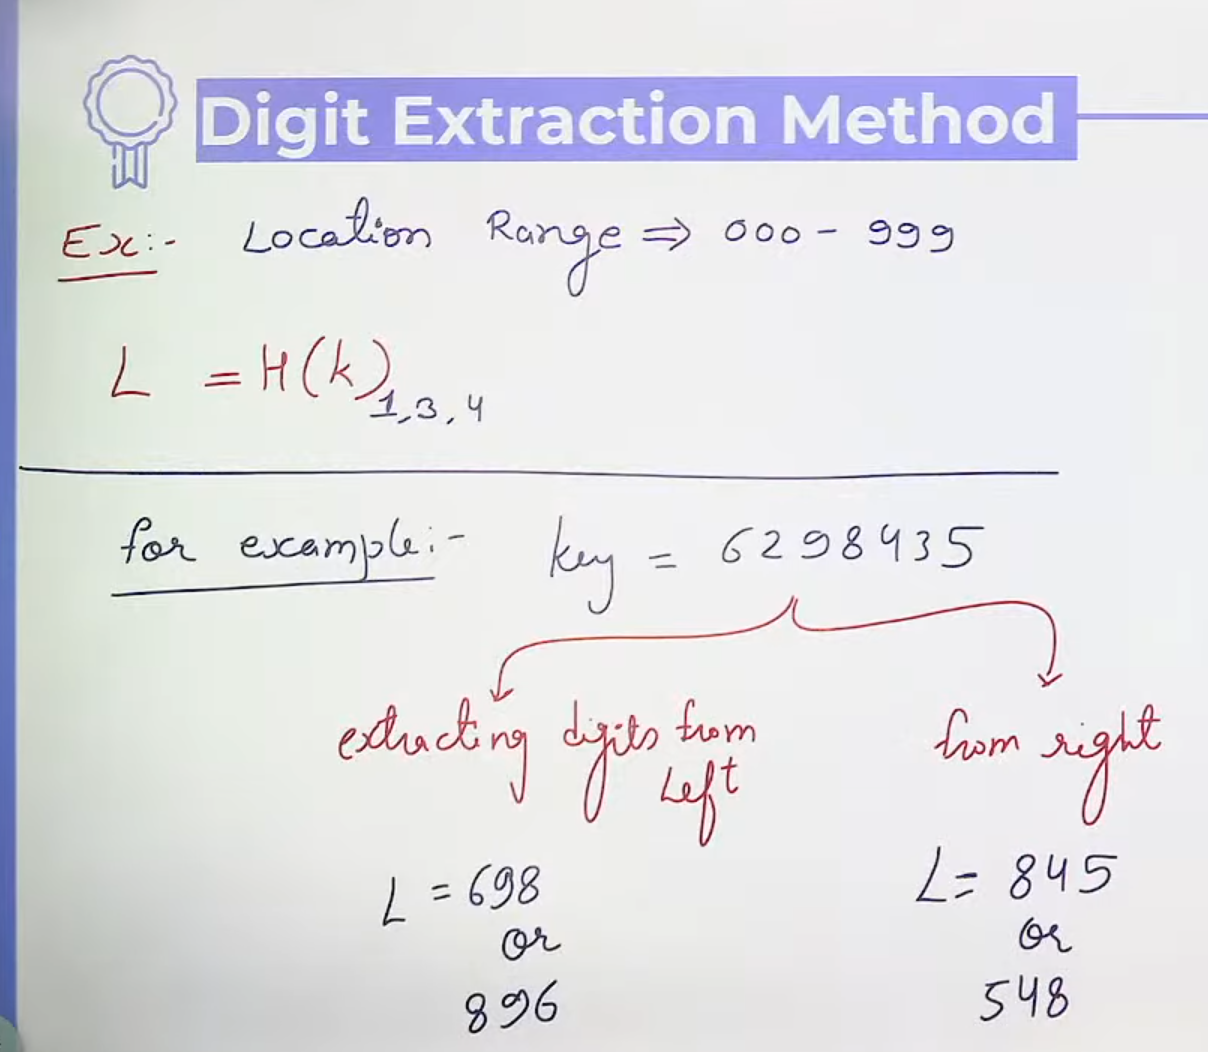 Digit Extraction Method
Ex:- Location Range ⇒ 000 - 999
L = H(k)1,3,4
for example:- key = 6298435
extracting digits from Left
from right
L = 698
or
896
L = 845
or
548